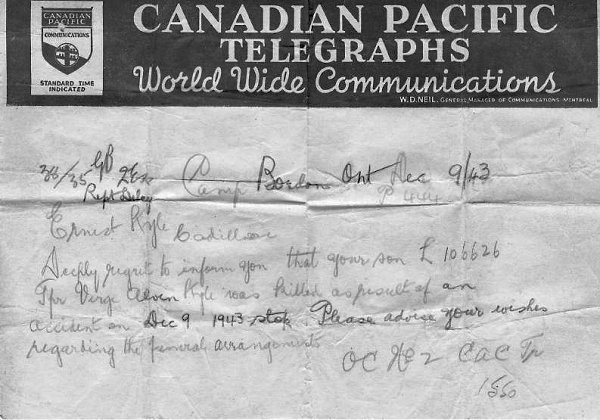 CANADIAN PACIFIC
COMMUNICATIONS
STANDARD TIME
INDICATED
CANADIAN PACIFIC
TELEGRAPHS
World Wide Communications
W.D. NEIL, GENERAL MANAGER OF COMMUNICATIONS MONTREAL
33/35 GB
Camp Borden Ont Dec 9/43
Rept Dely
Ernest Kyle
Cadillac
Deeply regret to inform you that your son L 106626
Tpr Virge Alvin Kyle was killed as result of an
accident on Dec 9 1943 stop. Please advise your wishes
regarding the funeral arrangements
OC No 2 CAC Tr